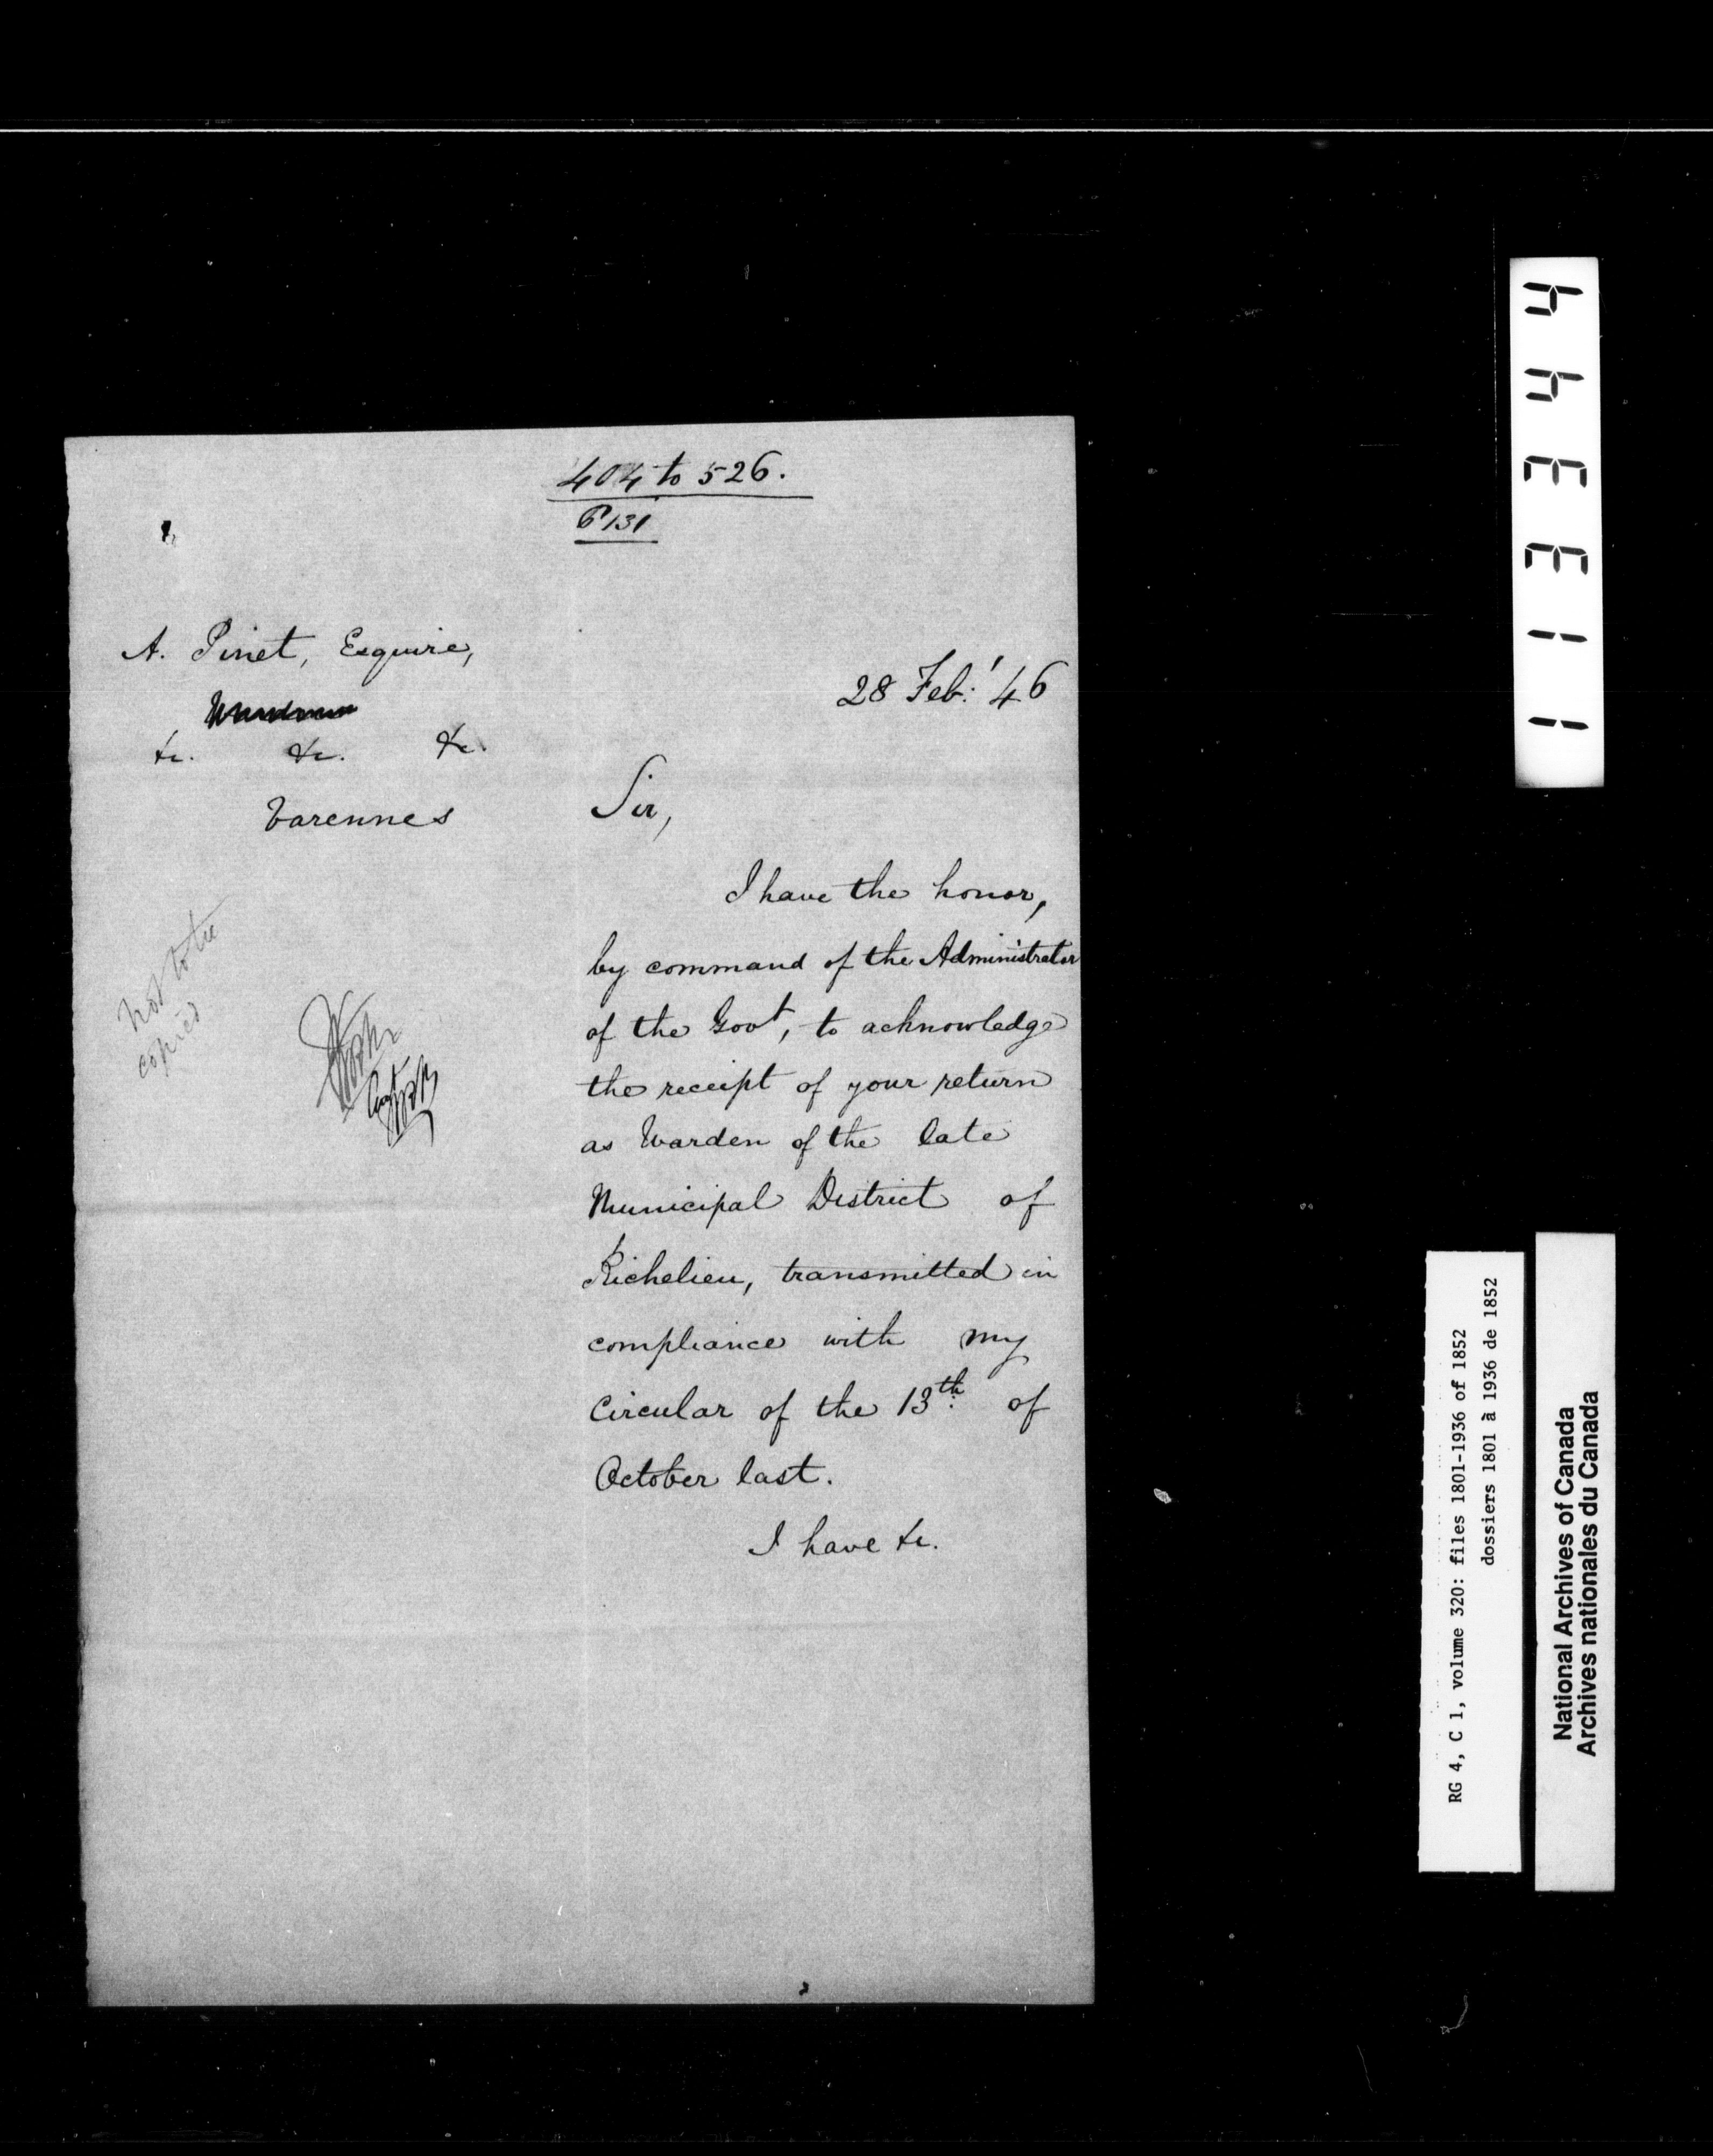 404 to 526.
P 131
A. Pinet, Esquire,
28 Feb: '46
&c. &c. &c.
Varennes
Sir,
I have the honor,
by command of the Administrator
of the Govt, to acknowledge
the receipt of your return
as Warden of the late
Municipal District of
Richelieu, transmitted in
compliance with my
Circular of the 13th. of
October last.
I have &c.
not to be
copied
113344
RG 4, C 1, volume 320: files 1801-1936 of 1852
dossiers 1801 à 1936 de 1852
National Archives of Canada
Archives nationales du Canada